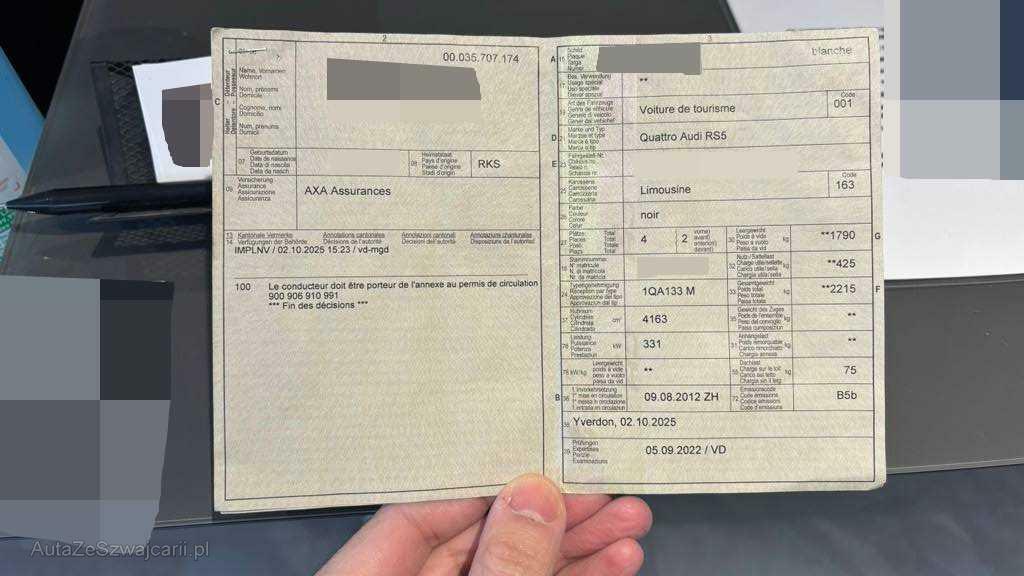 2
00.035.707.174
C
Name, Vornamen
Wohnort
Nom, prénoms
Domicile
Cognome, nomi
Domicilio
Num, prenums
Domicil
07 Geburtsdatum
Date de naissance
Data di nascita
Data da nasch.
08 Heimatstaat
Pays d'origine
Paese d'origine
Stadi d'origin
RKS
09 Versicherung
Assurance
Assicurazione
Assicuranza
AXA Assurances
13 Kantonale Vermerke Annotations cantonales Annotazioni cantonali Annotaziuns chantunalas
14 Verfügungen der Behörde Décisions de l'autorité Decisioni dell'autorità Disposiziuns da l'autoritad
IMPLNV / 02.10.2025 15:23 / vd-mgd
100 Le conducteur doit être porteur de l'annexe au permis de circulation
900 906 910 991
*** Fin des décisions ***
3
A 15 Schild
Plaque
Targa
Numer
blanche
17 Bes. Verwendung
Usage spécial
Uso speciale
Diever spezial
**
19 Art des Fahrzeugs
Genre de véhicule
Genere di veicolo
Gener dal vehichel
Voiture de tourisme
Code
001
D 21 Marke und Typ
Marque et type
Marca e tipo
Marca e tip
Quattro Audi RS5
E 23 Fahrgestell-Nr.
Châssis no
Telaio n.
Schassis nr.
25 Karosserie
Carrosserie
Carrozzeria
Carossaria
Limousine
Code
163
26 Farbe
Couleur
Colore
Colur
noir
27 Plätze: Total
Places: Total
Posti: Totale
Plazs: Total
4
2
vorne)
avant)
anteriori)
davant)
30 Leergewicht
Poids à vide
Peso a vuoto
Paisa da vid
kg
**1790
G
18 Stammnummer
N° matricule
N. di matricola
Nr. da matricla
32 Nutz-/Sattellast
Charge utile/sellette
Carico utile/sella
Chargia utila/sella
kg
**425
24 Typengenehmigung
Réception par type
Approvazione del tipo
Approvaziun dal tip
1QA133 M
33 Gesamtgewicht
Poids total
Peso totale
Paisa totala
kg
**2215
F
37 Hubraum
Cylindrée
Cilindrata
Cilindrada
cm³
4163
35 Gewicht des Zuges
Poids de l'ensemble
Peso del convoglio
Paisa cumposiziun
kg
**
76 Leistung
Puissance
Potenza
Prestaziun
kW
331
31 Anhängelast
Poids remorquable
Carico rimorchiato
Chargia annexa
kg
**
78 kW/kg
Leergewicht
poids à vide
peso a vuoto
paisa da vid
**
55 Dachlast
Charge sur le toit
Carico sul tetto
Chargia sin il tetg
kg
75
B 36 1. Inverkehrsetzung
1re mise en circulation
1a messa in circolazione
1. entrada en circulaziun
09.08.2012 ZH
72 Emissionscode
Code émissions
Codice emissioni
Code d'emissiuns
B5b
38 Yverdon, 02.10.2025
39 Prüfungen
Expertises
Perizie
Examinaziuns
05.09.2022 / VD
AutaZeSzwajcarii.pl